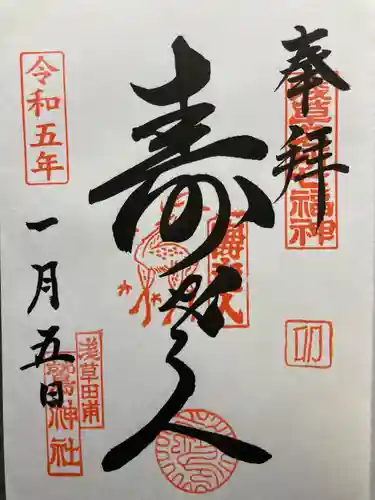 奉拝
浅草名所七福神
卯
寿老人
令和五年
一月五日
浅草田甫
鷲神社